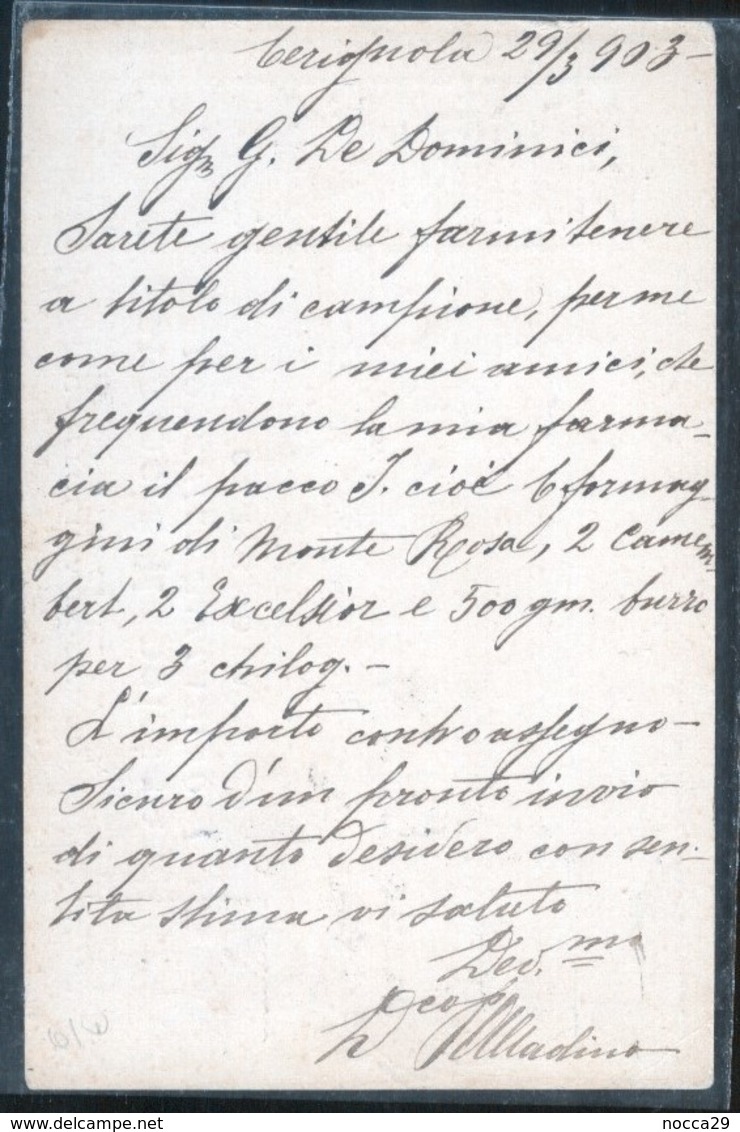 Cerignola 29/3 903 -
Sigr G. De Dominici,
Sarete gentile farmi tenere
a titolo di campione, per me
come per i miei amici, che
frequendono la mia farma-
cia il pacco I. cioè 6 formag-
gini di Monte Rosa, 2 Camem-
bert, 2 Excelsior e 500 gm. burro
per 3 chilog. -
L'importo contro assegno -
Sicuro d'un pronto invio
di quanto desidero con sen-
tita stima vi saluto
Dev.mo
nocca29